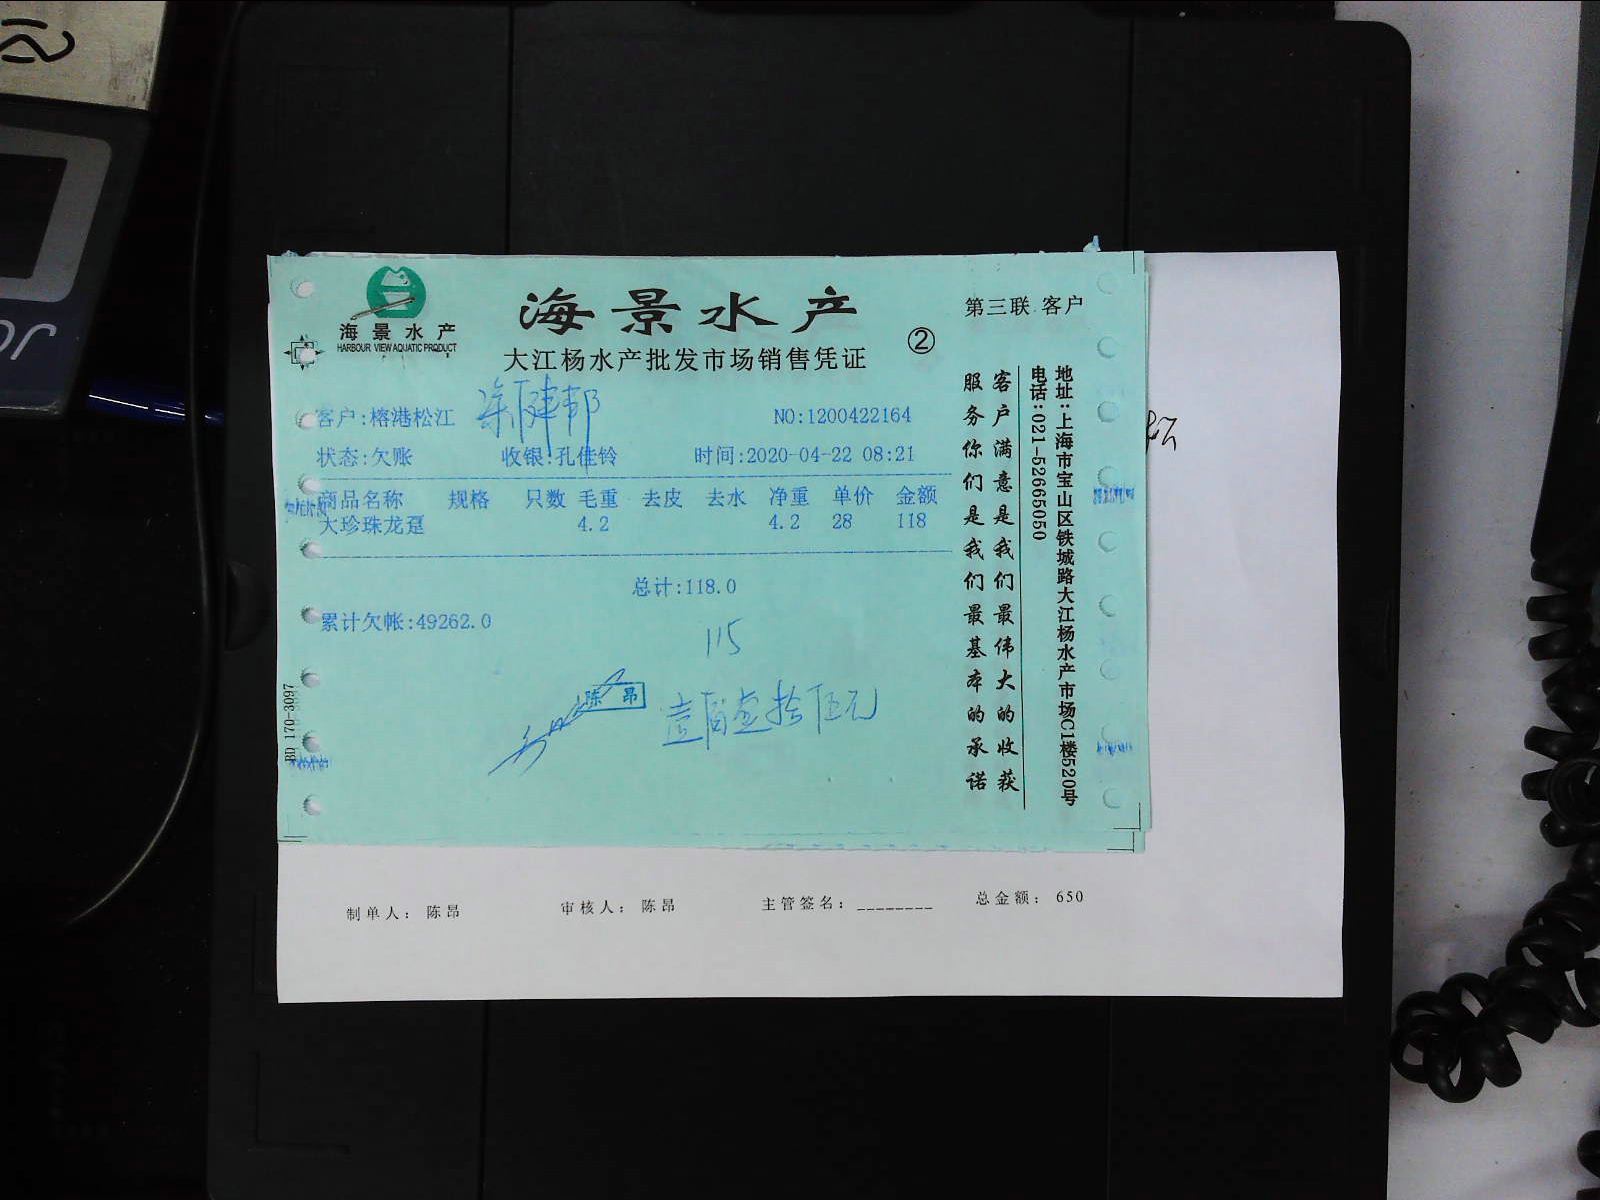 海景水产
HARBOUR VIEW AQUATIC PRODUCT
海景水产
大江杨水产批发市场销售凭证
②
第三联 客户
客户:榕港松江
NO:1200422164
状态:欠账 收银:孔佳铃 时间:2020-04-22 08:21
商品名称 规格 只数 毛重 去皮 去水 净重 单价 金额
大珍珠龙趸 4.2 4.2 28 118
总计:118.0
累计欠帐:49262.0
115
陈昂
壹佰壹拾伍元
BD 170-3097
客户满意是我们最伟大的收获
服务你们是我们最基本的承诺
地址:上海市宝山区铁城路大江杨水产市场C1楼520号
电话:021-52665050
制单人: 陈昂 审核人: 陈昂 主管签名:________ 总金额: 650